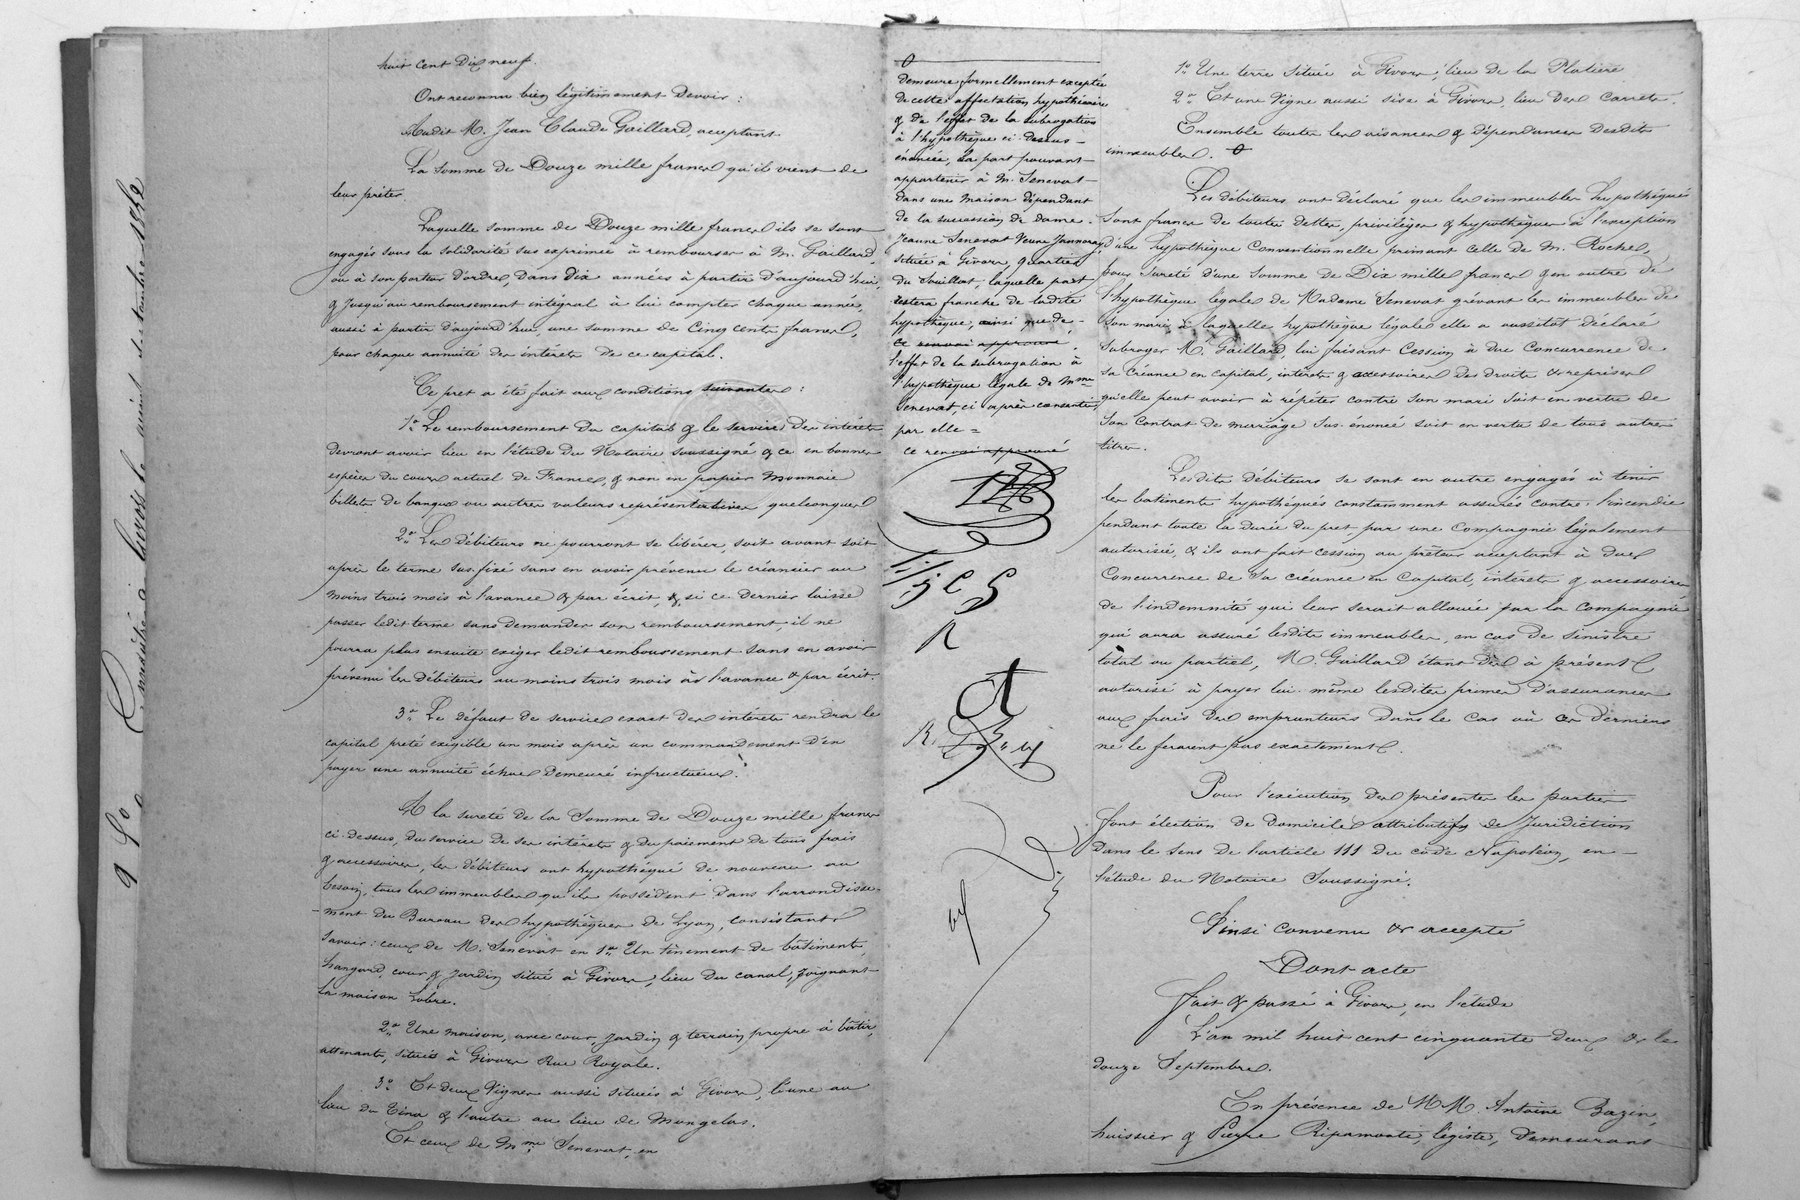 huit cent dix neuf.
Ont reconnu bien légitimement devoir :
Audit M. Jean Claude Gaillard, acceptant
La somme de Douze mille francs qu'il vient de
leur prêter
Laquelle somme de Douze mille francs ils se sont
engagés sous la solidarité sus exprimée à rembourser à M. Gaillard,
ou à son porteur d'ordres, dans dix années à partir d'aujourd'hui,
& jusqu'au remboursement intégral à lui compter chaque année,
aussi à partir d'aujourd'hui, une somme de Cinq cents francs,
pour chaque annuité des intérêts de ce capital.
Ce pret a été fait aux conditions suivantes :
1o Le remboursement du capital & le service des intérêts
devront avoir lieu en l'étude du Notaire soussigné & ce en bonnes
espèces du cours actuel de France, & non en papier monnaie
billets de banque ou autres valeurs représentatives quelconques
2o Les débiteurs ne pourront se libérer, soit avant soit
après le terme sus fixé sans en avoir prévenu le créancier au
moins trois mois à l'avance & par écrit, & si ce dernier laisse
passer ledit terme sans demander son remboursement, il ne
pourra plus ensuite exiger ledit remboursement sans en avoir
prévenu les débiteurs au moins trois mois à l'avance & par écrit.
3o Le défaut de service exact des intérêts rendra le
capital preté exigible un mois après un commandement d'en
payer une annuité échue demeuré infructueux.
A la sureté de la Somme de Douze mille francs
ci-dessus, du service de ses intérêts & du paiement de tous frais
& accessoires, les débiteurs ont hypothéqué de nouveau au
besoin, tous les immeubles qu'ils possèdent dans l'arrondisse-
-ment du Bureau des hypothèques de Lyon, consistant
Savoir : ceux de M. Senevat en 1o Un tènement de bâtiments,
hangard, cour & jardin situé à Givors, lieu du canal, joignant
la maison Lobre.
2o Une maison, avec cour, jardin & terrain propre à bâtir,
attenants, situés à Givors Rue Royale.
3o Et deux Vignes aussi situées à Givors, l'une au
lieu du & l'autre au lieu de Mongelas.
Et ceux de Mme Senevat, en
demeure formellement exceptée
de cette affectation hypothécaire
& de l'effet de la subrogation
à l'hypothèque ci dessus
énoncée, la part pouvant
appartenir à M. Senevat
dans une maison dépendant
de la succession de dame
Jeanne Senevat Veuve
située à Givors, quartier
du Souillat, laquelle part
restera franche de ladite
hypothèque, ainsi que de
ce renvoi approuvé
l'effet de la subrogation à
l'hypothèque légale de Mme
Senevat, ci après consentie
par elle =
ce renvoi approuvé
1o Une terre située à Givors, lieu de la Platière
2o Et une Vigne aussi sise à Givors, lieu des Carrets.
Ensemble toutes les aisances & dépendances desdits
immeubles.
Les débiteurs ont déclaré que les immeubles hypothéqués
sont francs de toutes dettes, privilèges & hypothèques à l'exception
d'une hypothèque Conventionnelle primant celle de M. Rochel,
pour sureté d'une somme de Dix mille francs & en outre de
l'hypothèque légale de Madame Senevat grévant les immeubles de
son mari, à laquelle hypothèque légale elle a aussitôt déclaré
subroger M. Gaillard, lui faisant Cession à due Concurrence de
sa créance en capital, intérêts & accessoires des droits & reprises
qu'elle peut avoir à répéter contre son mari soit en vertu de
son Contrat de mariage sus-énoncé soit en vertu de tous autres
titres.
Lesdits débiteurs se sont en outre engagés à tenir
les batiments hypothéqués constamment assurés contre l'incendie
pendant toute la durée du pret, par une Compagnie légalement
autorisée, & ils ont fait cession au prêteur acceptant à due
Concurrence de sa créance en Capital, intérêts & accessoires
de l'indemnité qui leur serait allouée par la Compagnie
qui aura assuré lesdits immeubles, en cas de sinistre
total ou partiel, M. Gaillard étant dès à présent
autorisé à payer lui-même lesdites primes d'assurances
aux frais des emprunteurs dans le cas où ces derniers
ne le feraient pas exactement.
Pour l'exécution des présentes les parties
font élection de domicile attributif de Juridiction
dans le sens de l'article 111 du code Napoléon, en
l'étude du Notaire Soussigné.
Ainsi convenu & accepté
Dont acte
Fait & passé à Givors, en l'étude
L'an mil huit cent cinquante deux & le
douze Septembre.
En présence de MM. Antoine Bazin,
huissier & Pierre Ripamonte, légiste, demeurant